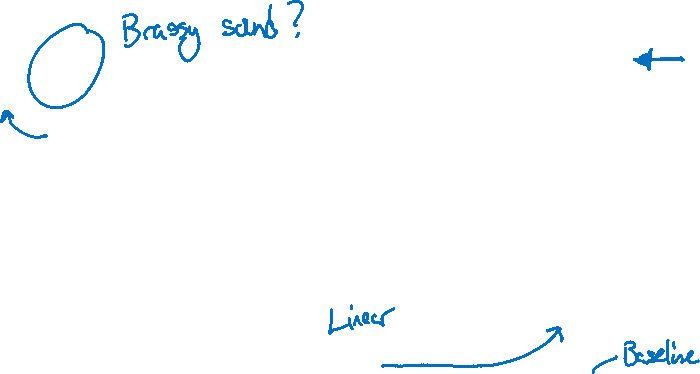 Brassy sound?
Linear
Baseline